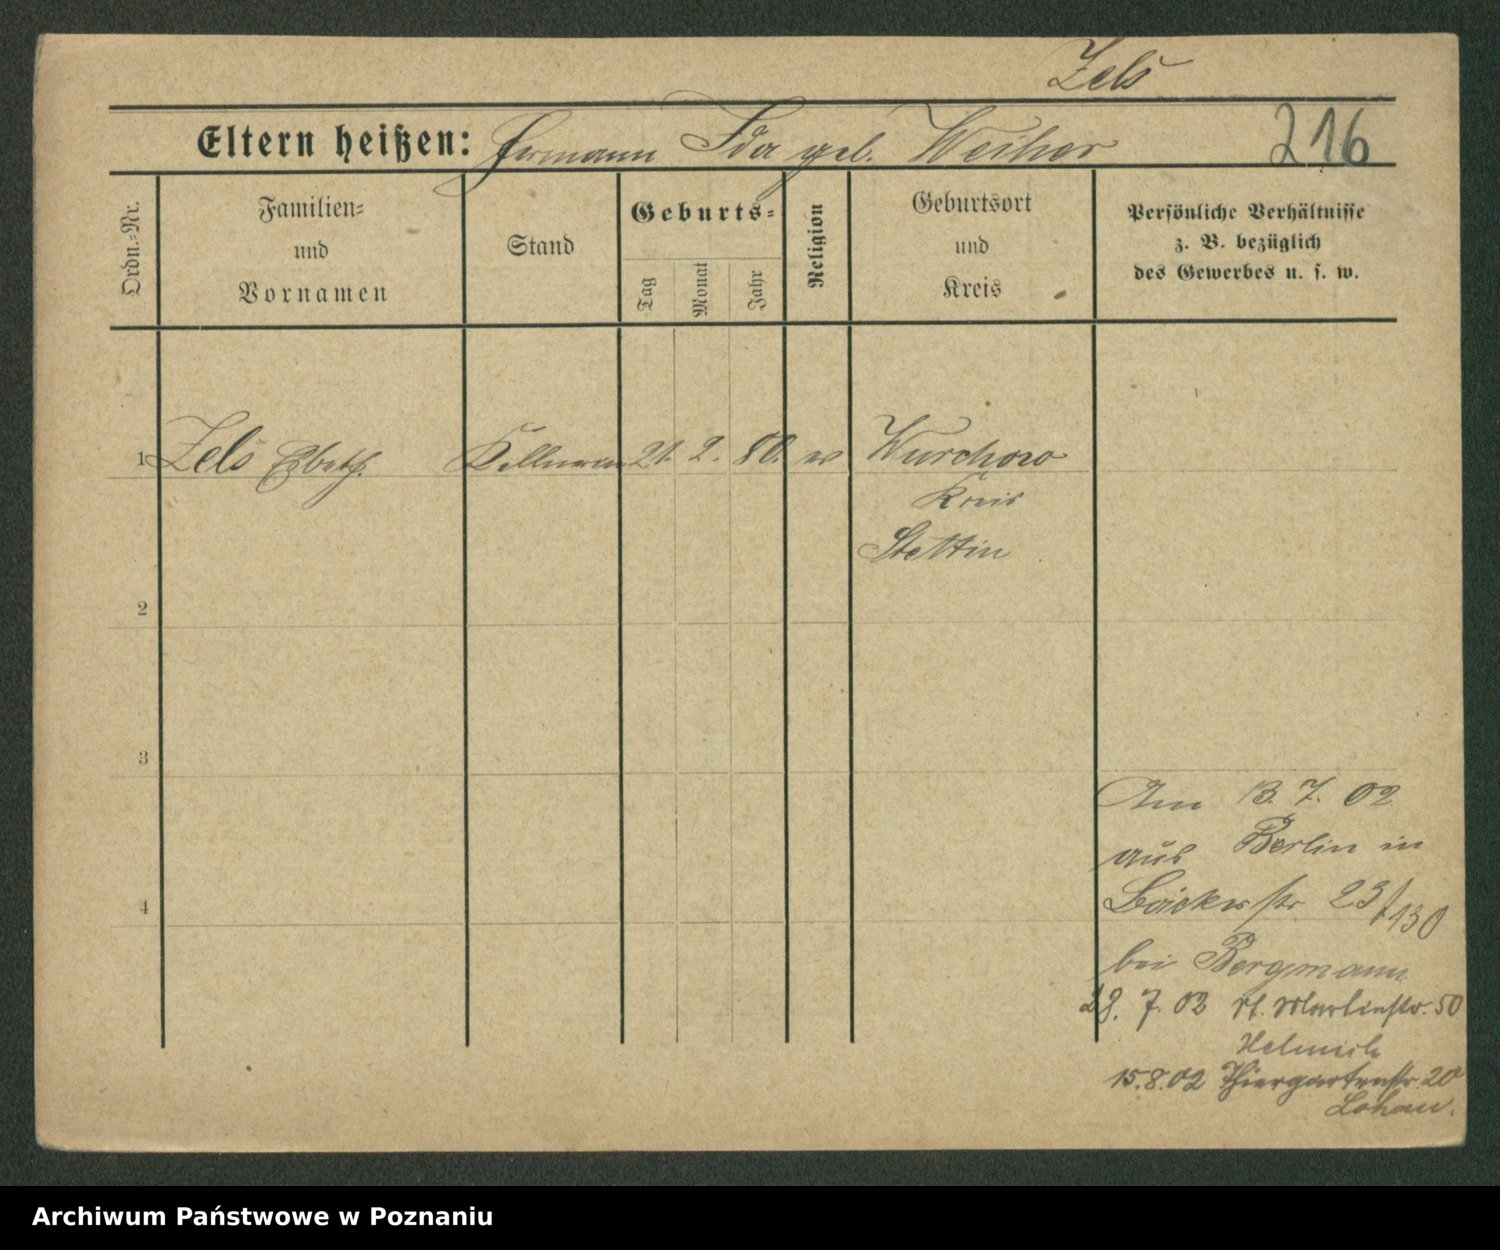 Zels
Eltern heißen: Hermann Ida geb. Weiher
216
Ordn.-Nr.
Familien-
und
Vornamen
Stand
Geburts-
Tag
Monat
Jahr
Religion
Geburtsort
und
Kreis
Persönliche Verhältnisse
z. B. bezüglich
des Gewerbes u. s. w.
1 Zels Elbeth. Kellnerin 21. 2. 80. ev Wurchow
Kreis
Stettin
2
3
Am 13. 7. 02
aus Berlin in
Bäckerstr 23/130
4
bei Bergmann
28. 7. 02 St. Martinstr. 50
15.8.02 Thiergartenstr. 20
Archiwum Państwowe w Poznaniu